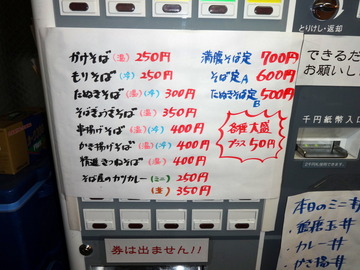 とりけし・返却
かけそば(温)250円
もりそば(冷)250円
たぬきそば(温)(冷)300円
そばぎょうざそば(温)350円
串揚げそば(温)(冷)400円
かき揚げそば(温)(冷)400円
精進きつねそば(温)400円
そば屋のカツカレー(ミニ)250円
(並)350円
満腹そば定 700円
そば定A 600円
たぬきそば定B 500円
各種大盛
プラス50円
できるだ
お願いし
千円紙幣入口
券は出ません!!
本日のミニ丼
・カレー丼
・かき揚丼